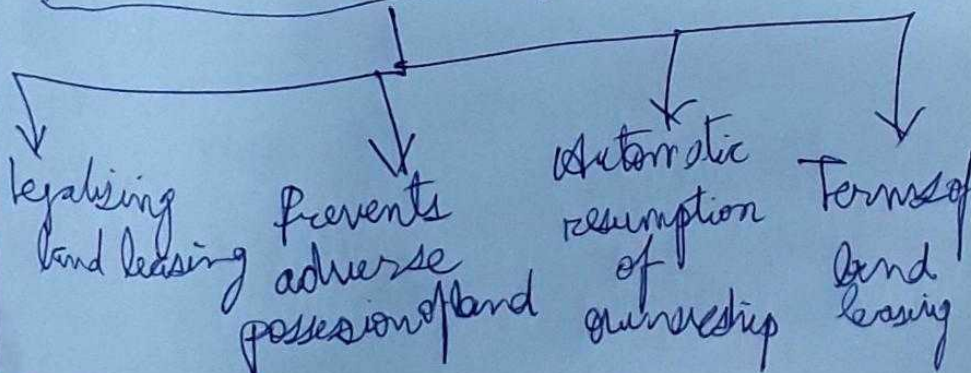 legalising
land leasing
Prevents
adverse
possession of land
Automatic
resumption
of
ownership
Terms of
land
leasing